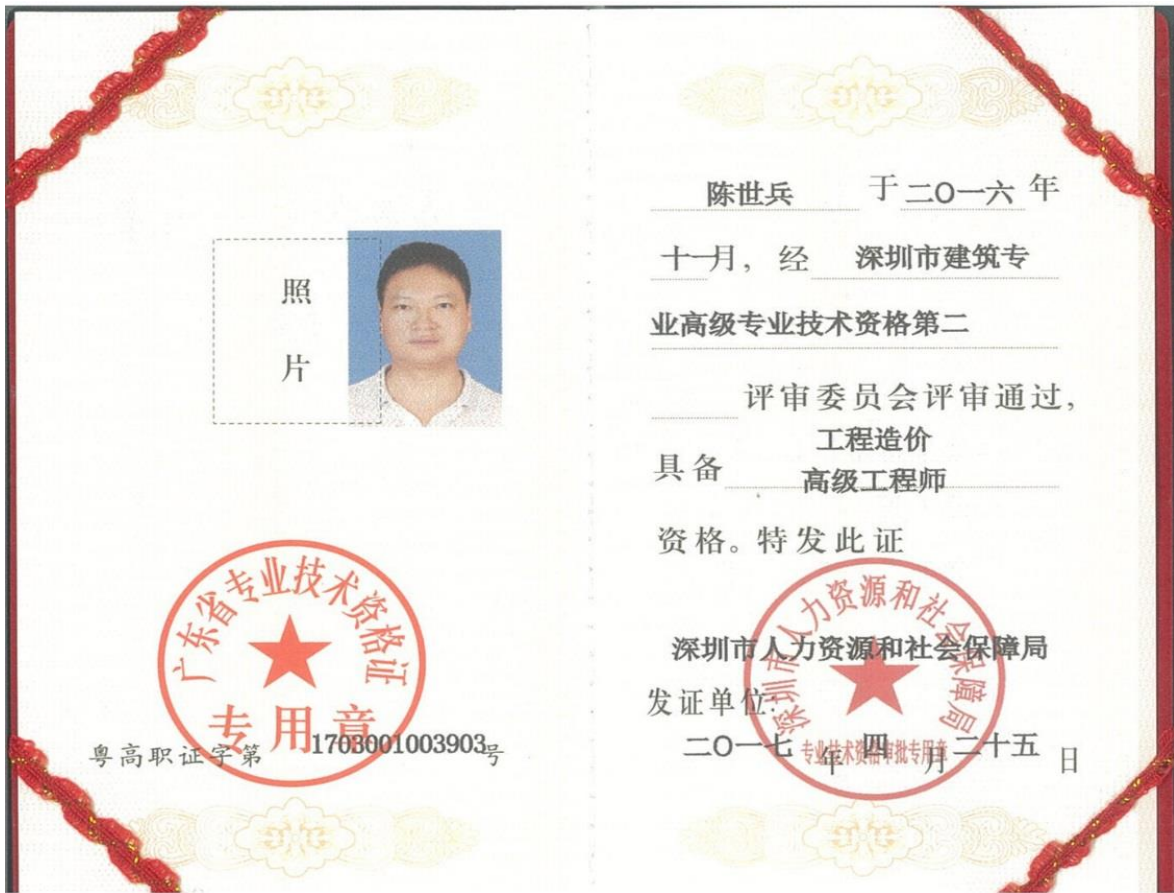 照
片
广东省专业技术资格证
专用章
粤高职证字第1703001003903号
陈世兵 于二〇一六年
十一月，经 深圳市建筑专
业高级专业技术资格第二
评审委员会评审通过，
工程造价
具备 高级工程师
资格。特发此证
深圳市人力资源和社会保障局
深圳市人力资源和社会保障局
发证单位：
专业技术资格审批专用章
二〇一七年四月二十五日